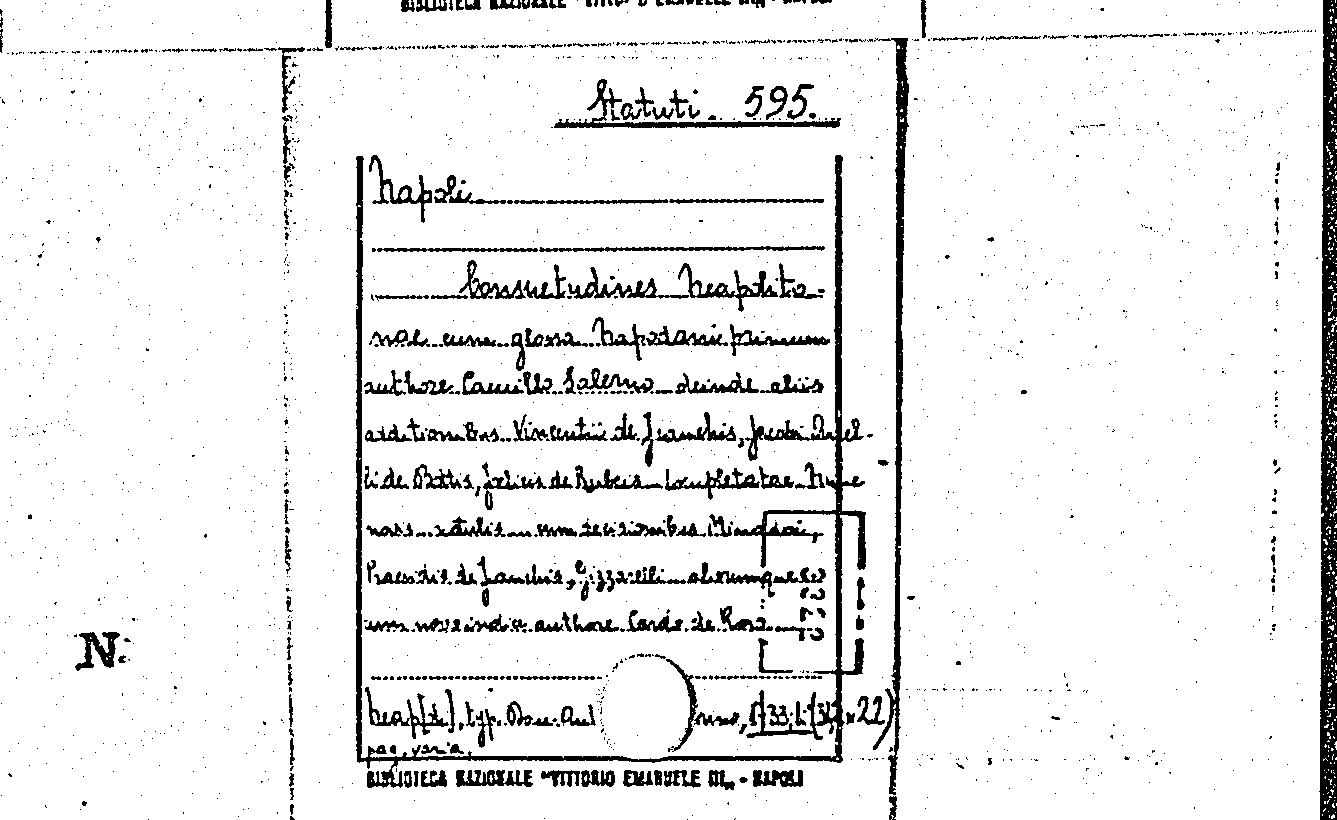 BIBLIOTECA NAZIONALE "VITTORIO EMANUELE III„ - NAPOLI
Statuti. 595.
Napoli
Consuetudines Neapolita-
nae cum glossa Napodani primum
authore Camillo Salerno deinde aliis
additionibus Vincentii de Franchis, Jacobi Anel-
li de Bottis, Felicis de Rubeis locupletatae. Nunc
cum decisionibus Minadoi,
Praesidis de Franchis, Gizzarelli aliorumque
novo indice authore Carolo de Rosa
Neap[oli], typ.
pag. varia.
N.
BIBLIOTECA NAZIONALE "VITTORIO EMANUELE III„ - NAPOLI